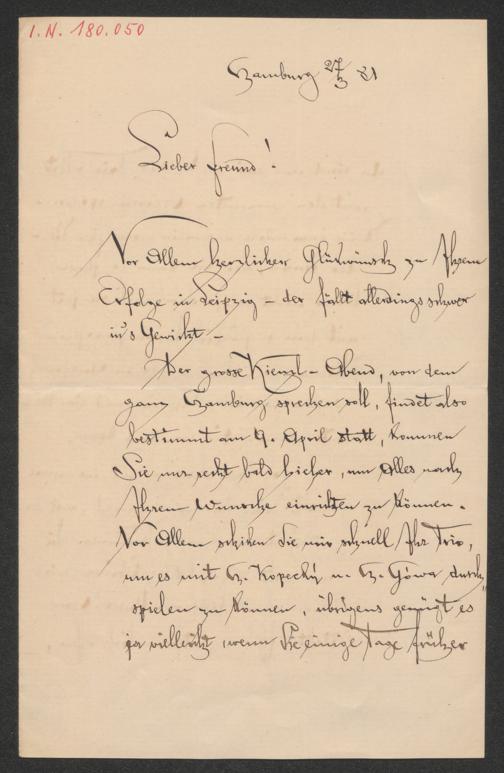 I.N. 180.050
Hamburg 27/3 81
Lieber Freund!
Vor Allem herzlichen Glückwunsch zu Ihrem
Erfolge in Leipzig – der fällt allerdings schwer
in's Gewicht –
Der grosse Kienzl-Abend, von dem
ganz Hamburg sprechen soll, findet also
bestimmt am 9. April statt, kommen
Sie nur recht bald hieher, um Alles nach
Ihrem Wunsche einrichten zu können.
Vor Allem schiken Sie mir schnell Ihr Trio,
um es mit H. Kopecký u. H. Gowa durch„
spielen zu können, übrigens genügt es
ja vielleicht, wenn Sie einige Tage früher